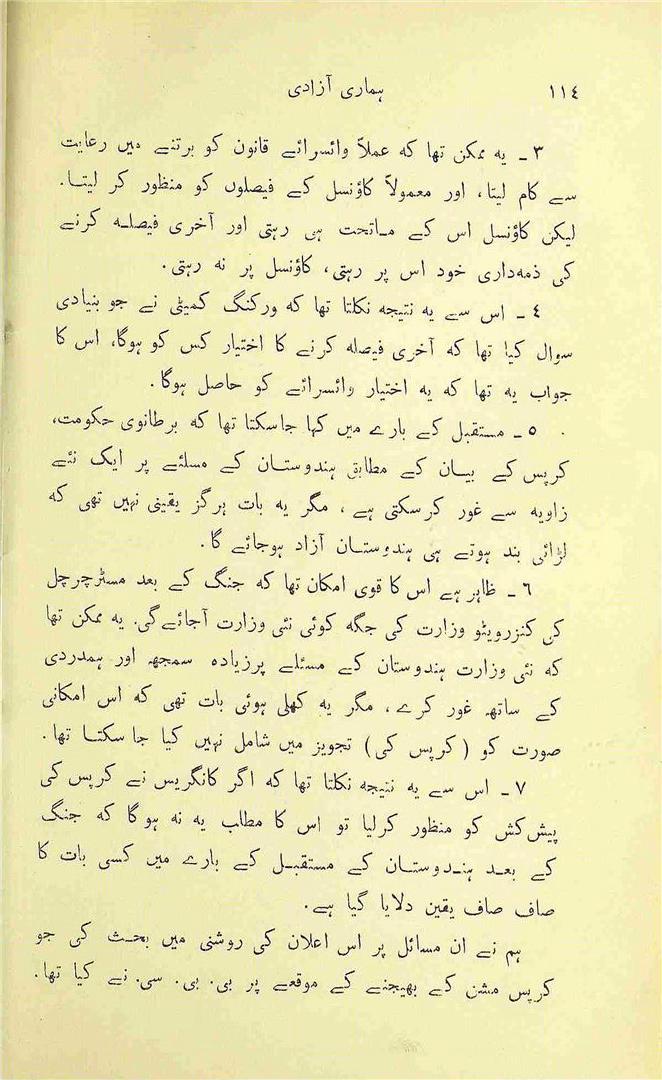 ۱۱٤ ہماری آزادی
۳ ـ یہ ممکن تھا کہ عملاً وائسرائے قانون کو برتنے میں رعایت
سے کام لیتا، اور معمولاً کاؤنسل کے فیصلوں کو منظور کر لیتا۔
لیکن کاؤنسل اس کے ماتحت ہی رہتی اور آخری فیصلہ کرنے
کی ذمہ‌داری خود اس پر رہتی، کاؤنسل پر نہ رہتی۔
٤ ـ اس سے یہ نتیجہ نکلتا تھا کہ ورکنگ کمیٹی نے جو بنیادی
سوال کیا تھا کہ آخری فیصلہ کرنے کا اختیار کس کو ہوگا، اس کا
جواب یہ تھا کہ یہ اختیار وائسرائے کو حاصل ہوگا۔
۵ ـ مستقبل کے بارے میں کہا جاسکتا تھا کہ برطانوی حکومت،
کرپس کے بیان کے مطابق ہندوستان کے مسئلے پر ایک نئے
زاویہ سے غور کرسکتی ہے، مگر یہ بات ہرگز یقینی نہیں تھی کہ
لڑائی بند ہوتے ہی ہندوستان آزاد ہوجائے گا۔
٦ ـ ظاہر ہے اس کا قوی امکان تھا کہ جنگ کے بعد مسٹرچرچل
کی کنزرویٹو وزارت کی جگہ کوئی نئی وزارت آجائے‌گی۔ یہ ممکن تھا
کہ نئی وزارت ہندوستان کے مسئلے پرزیادہ سمجھ اور ہمدردی
کے ساتھ غور کرے، مگر یہ کھلی ہوئی بات تھی کہ اس امکانی
صورت کو (کرپس کی) تجویز میں شامل نہیں کیا جا سکتا تھا۔
۷ ـ اس سے یہ نتیجہ نکلتا تھا کہ اگر کانگریس نے کرپس کی
پیش‌کش کو منظور کرلیا تو اس کا مطلب یہ نہ ہوگا کہ جنگ
کے بعد ہندوستان کے مستقبل کے بارے میں کسی بات کا
صاف صاف یقین دلایا گیا ہے۔
ہم نے ان مسائل پر اس اعلان کی روشنی میں بحث کی جو
کرپس مشن کے بھیجنے کے موقعے پر بی۔ بی۔ سی۔ نے کیا تھا۔